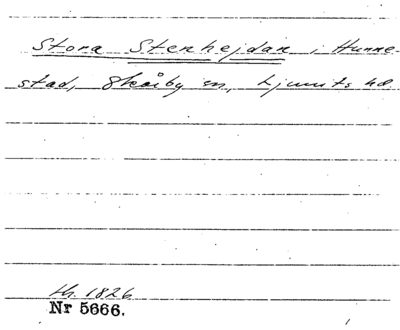 Stora Stenhejdan i Hunne-
stad, Skårby sn, Ljunits hd.
th. 1826
Nr 5666.